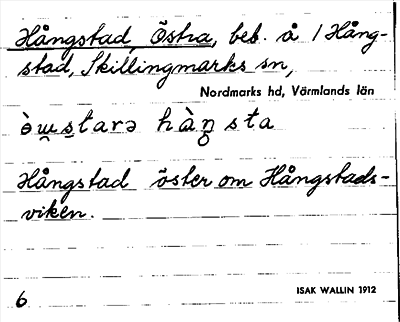 Hångstad, Östra, beb. å 1 Hång-
stad, Skillingmarks sn,
Nordmarks hd, Värmlands län
hàŋ sta
Hångstad öster om Hångstads-
viken.
6
ISAK WALLIN 1912